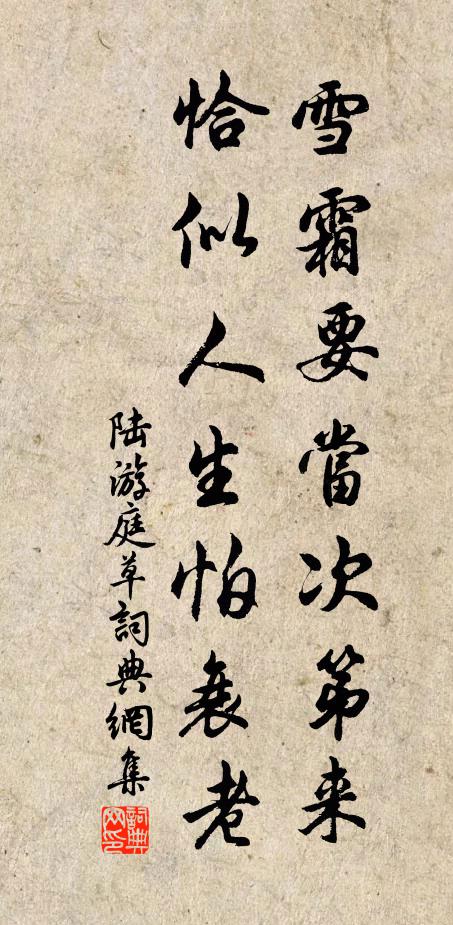 雪霜要當次第来
恰似人生怕衰老
陆游庭草詞典網集
詞典网印